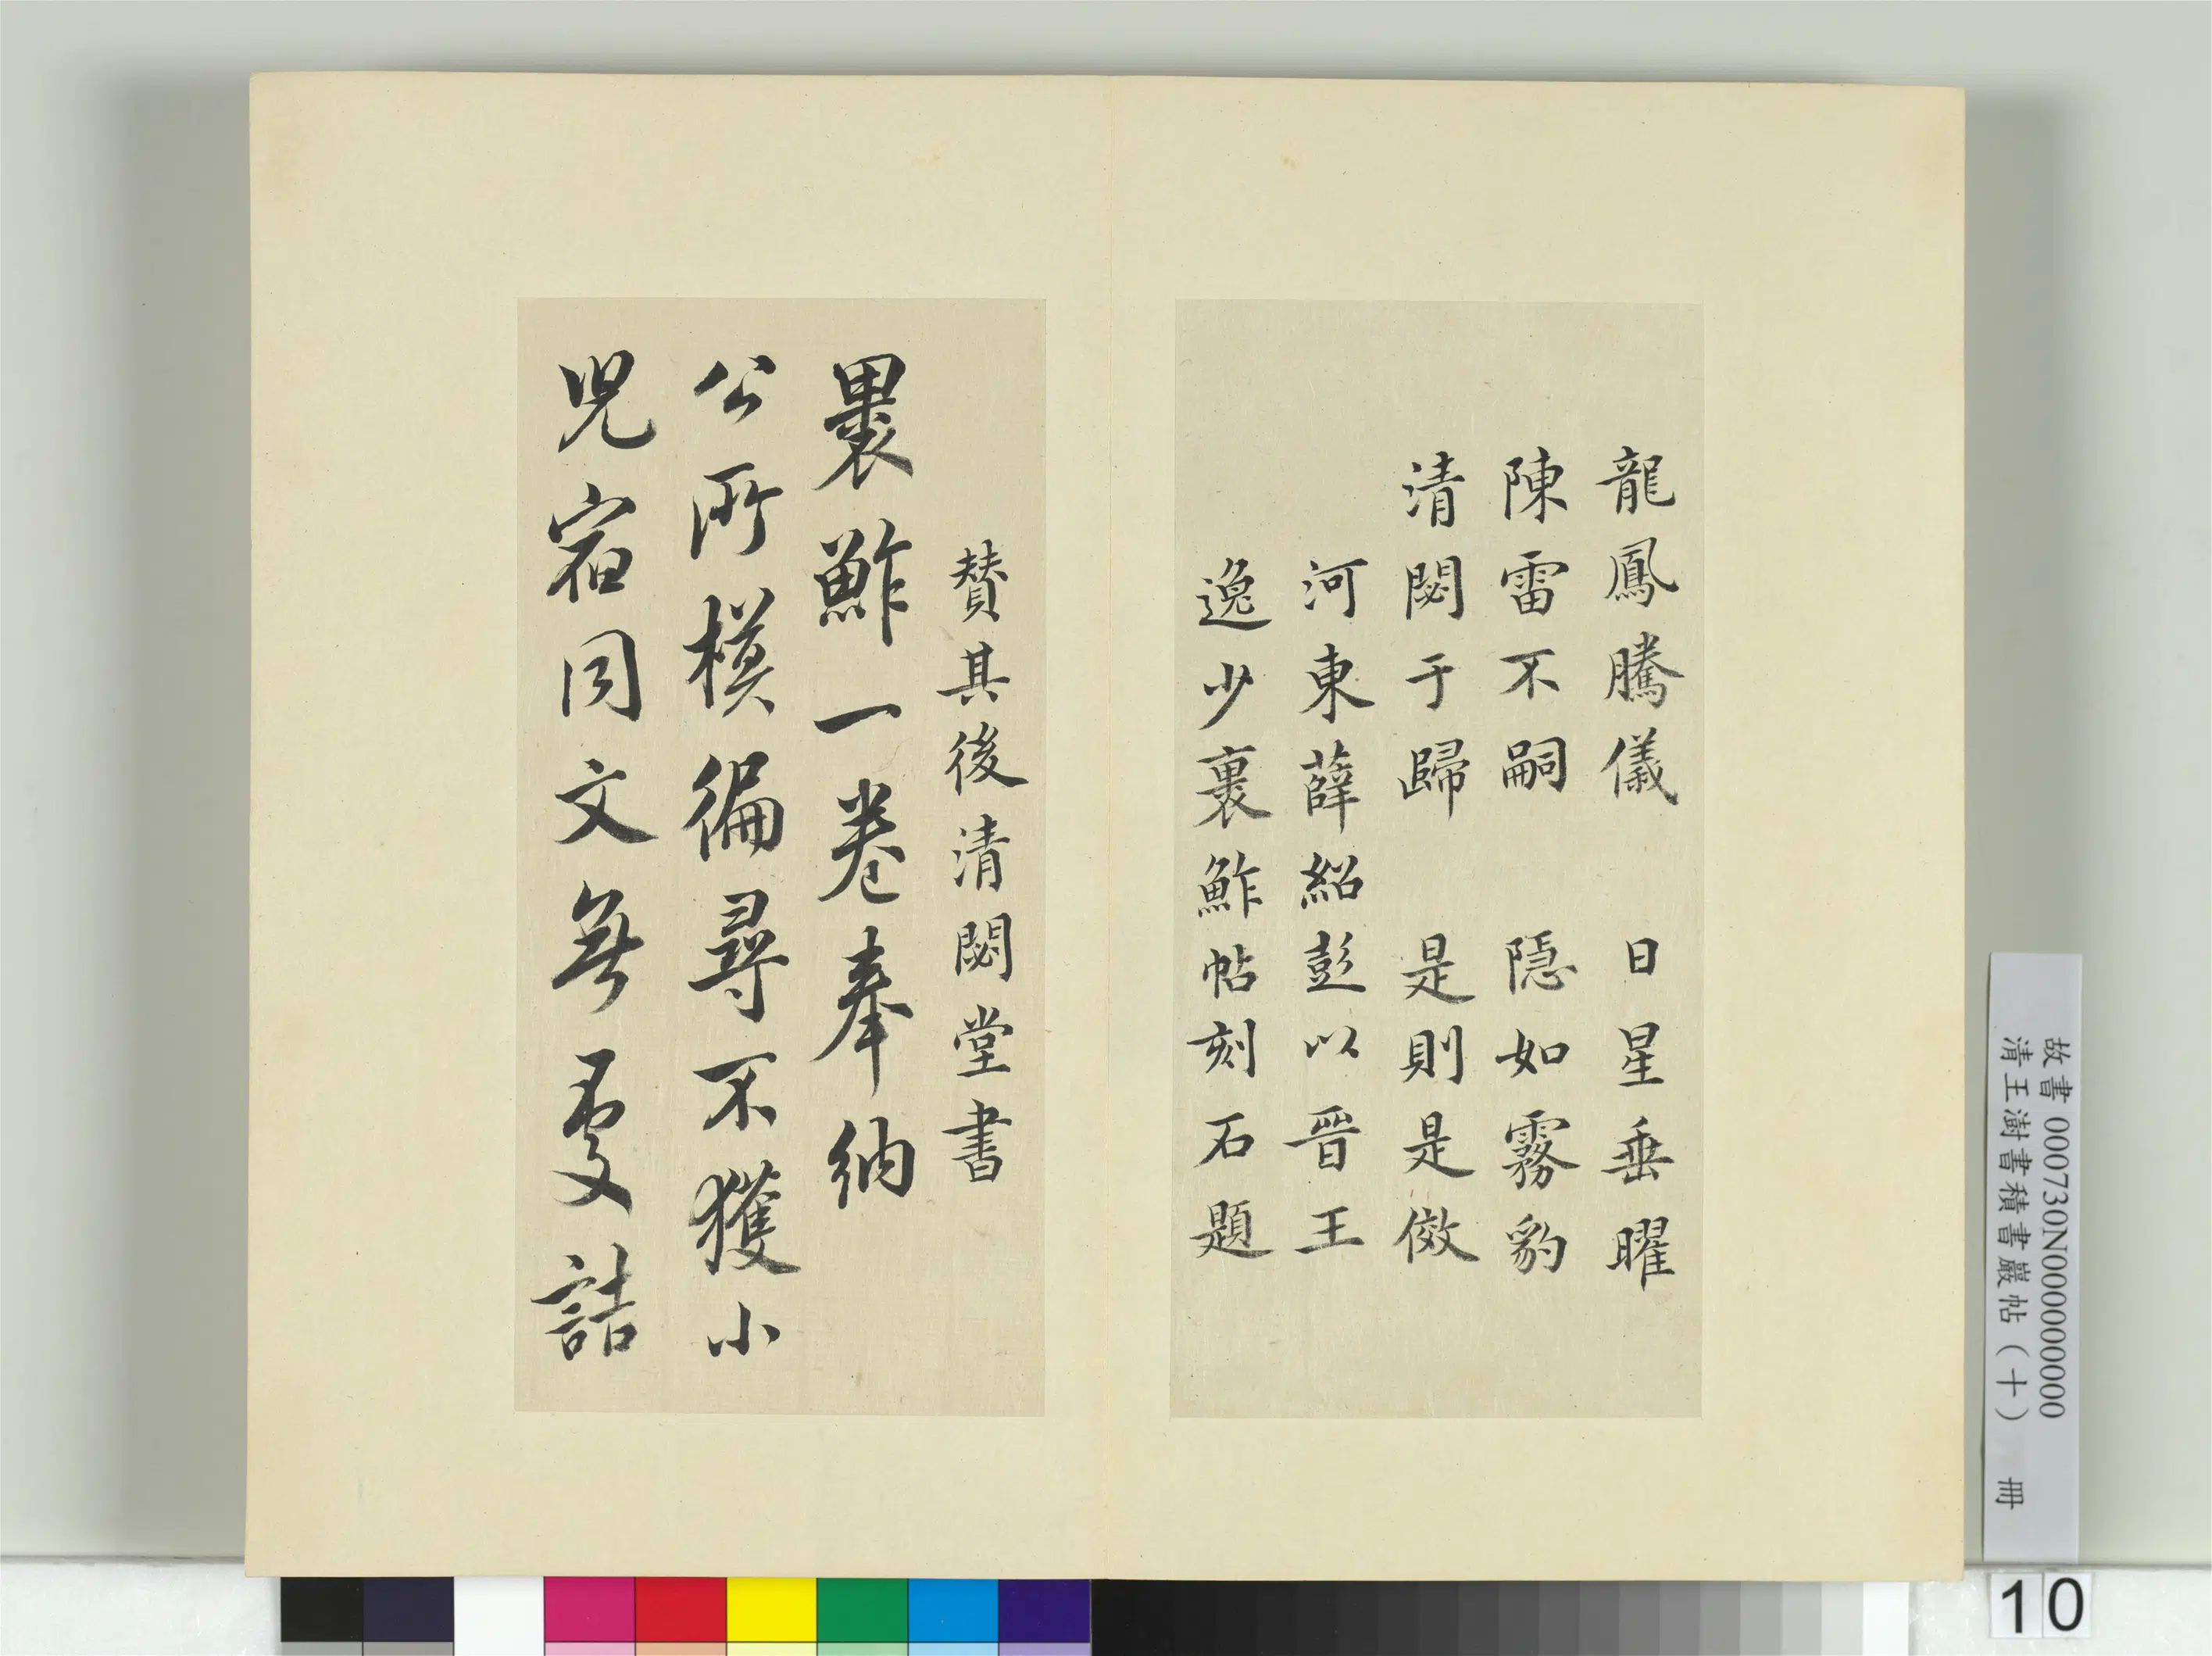 龍鳳騰儀　日星垂曜
陳雷不嗣　隱如霧豹
清閟于歸　是則是傚
河東薛紹彭以晉王
逸少裹鮓帖刻石題
贊其後清閟堂書
裹鮓一卷奉納
公所模徧尋不獲小
児宿同文無處詰
故書000730N000000000
清王澍書積書巖帖（十）　冊
10